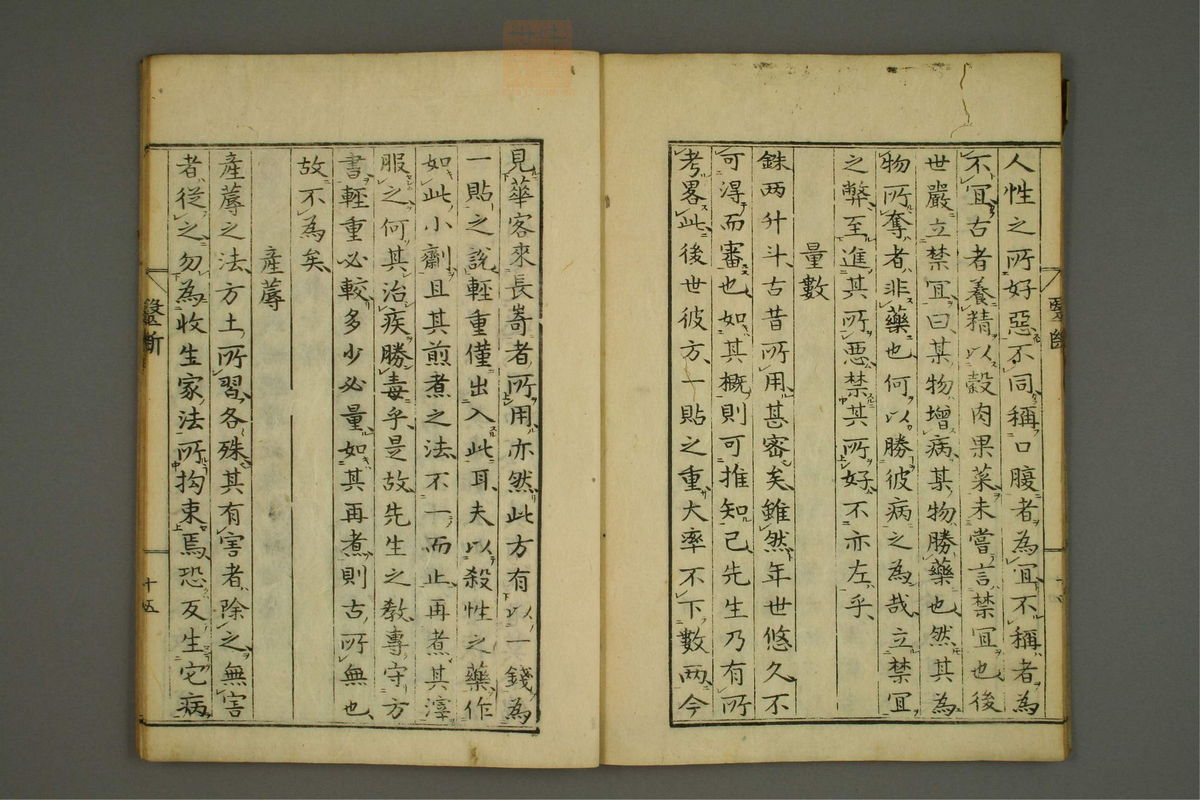 人性之所好惡不同稱口腹者為宜不稱者為
不宜古者養精以穀肉果菜未嘗言禁宜也後
世嚴立禁宜曰某物增病某物勝藥也然其為
物所奪者非藥也何以勝彼病之為哉立禁宜
之弊至進其所惡禁其所好不亦左乎
量數
銖两升斗古昔所用甚審矣雖然年世悠久不
可得而審也如其概則可推知已先生乃有所
考畧此後世彼方一貼之重大率不下數两今
見華客來長嵜者所用亦然此方有以一錢為
一貼之說輕重僅出入此耳夫以殺性之藥作
如此小劑且其煎煮之法不一而止再煮其滓
服之何其治疾勝毒乎是故先生之教專守方
書輕重必較多少必量如其再煮則古所無也
故不為矣
產蓐
產蓐之法方土所習各殊其有害者除之無害
者從之勿為收生家法所拘束焉恐反生它病
醫斷
十五